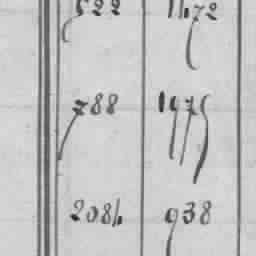 522 1472
788 1975
2084 938